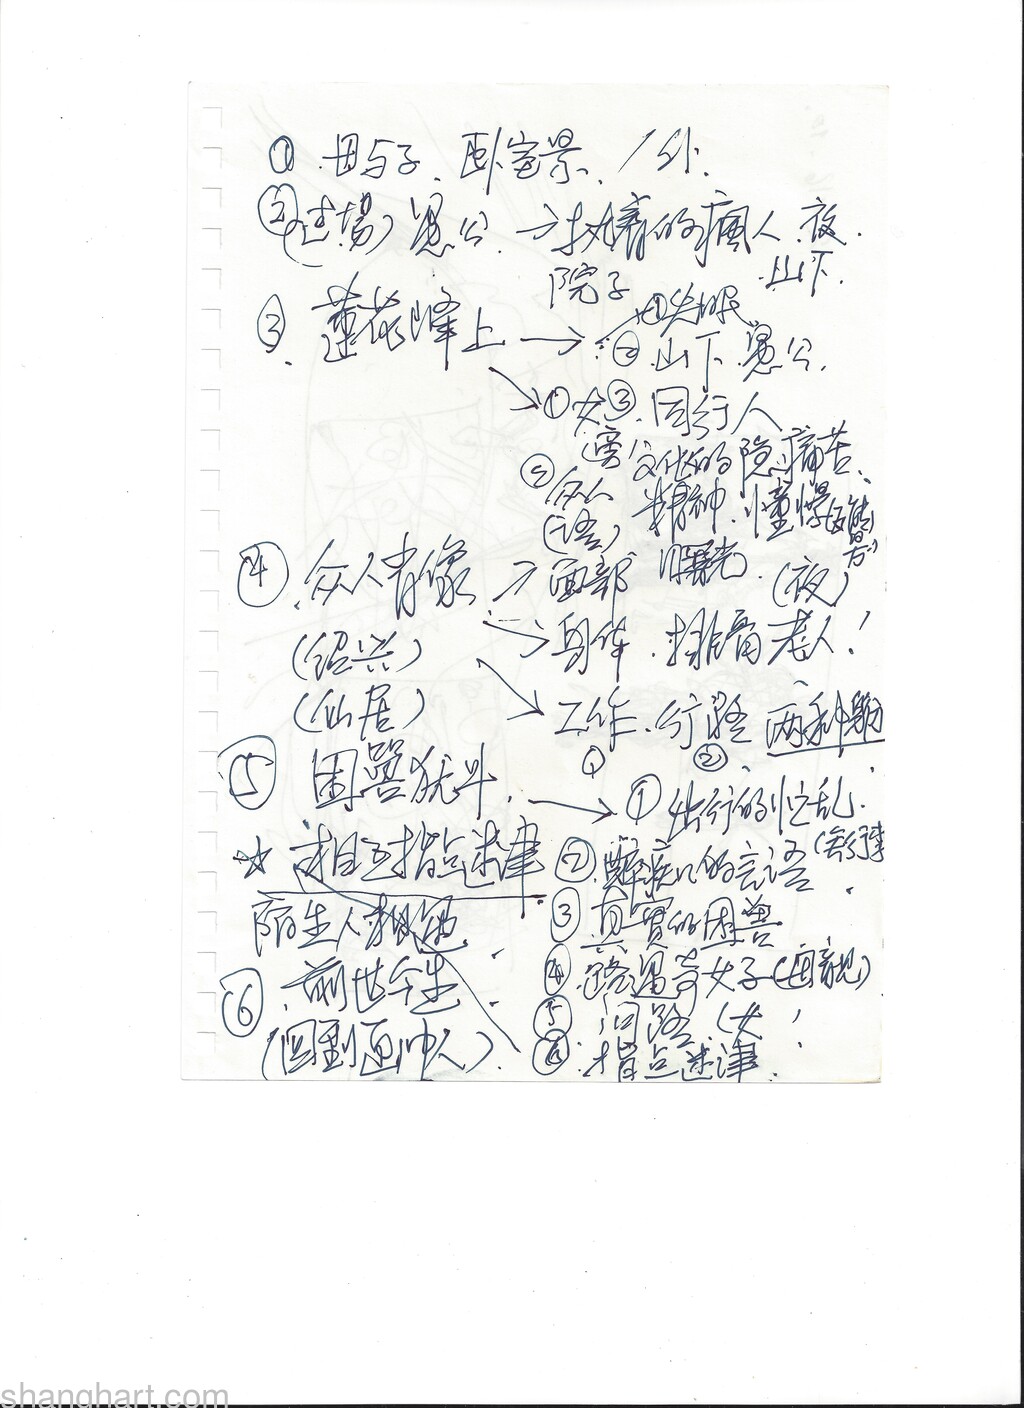 ① 母与子. 卧室景. /外.
② (过場) 愚公. → 扶着的瘋人. 夜.
院子 山下.
③ 蓮花峰上 → ①失明民
② 山下. 愚公.
① 女 ③. 同行人
文化的隐痛苦.
⑤ 众人 精神. 憧憬
(语) 曙光.
④ 众人肖像 → 面部 (夜)
(绍兴) → 身体. 排骨老人!
(仙居) → 工作. 行路 两种
① ②
⑤ 困兽犹斗. → ① 出行的忙乱.
☆ 相互指点迷津 ② 的言语
陌生人相遇. ③ 真實的困兽
⑥ 前世今生 ④ 路遇奇女子(母親)
(回到画中人). ⑤ 问路. (女
⑥ 指点迷津.
shanghart.com